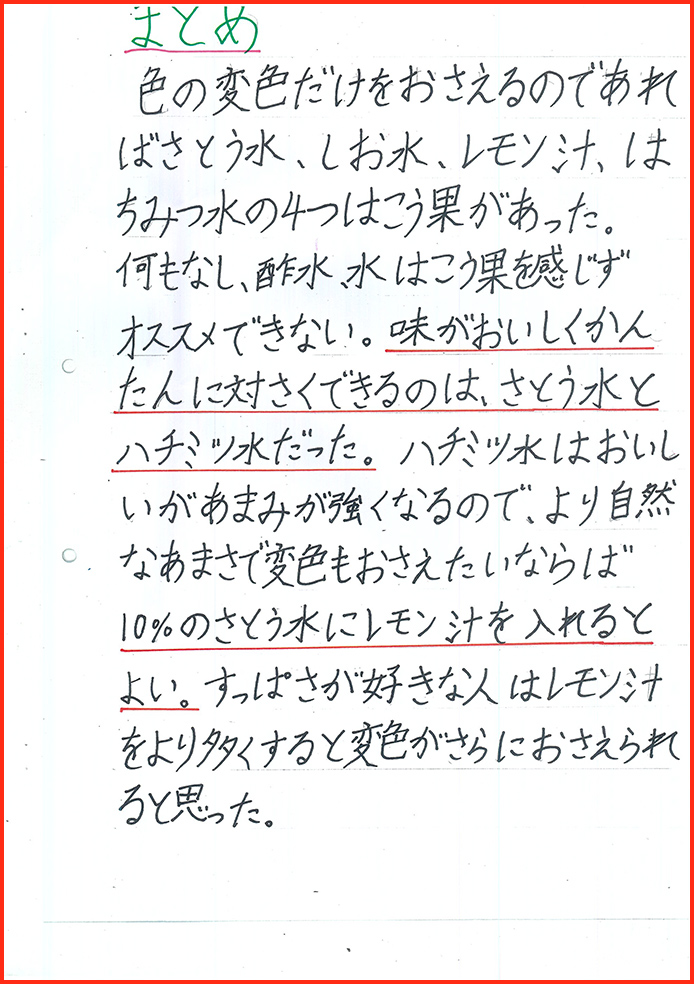 まとめ
色の変色だけをおさえるのであれ
ばさとう水、しお水、レモン汁、は
ちみつ水の4つはこう果があった。
何もなし、酢水、水はこう果を感じず
オススメできない。味がおいしくかん
たんに対さくできるのは、さとう水と
ハチミツ水だった。ハチミツ水はおいし
いがあまみが強くなるので、より自然
なあまさで変色もおさえたいならば
10%のさとう水にレモン汁を入れると
よい。すっぱさが好きな人はレモン汁
をより多くすると変色がさらにおさえられ
ると思った。